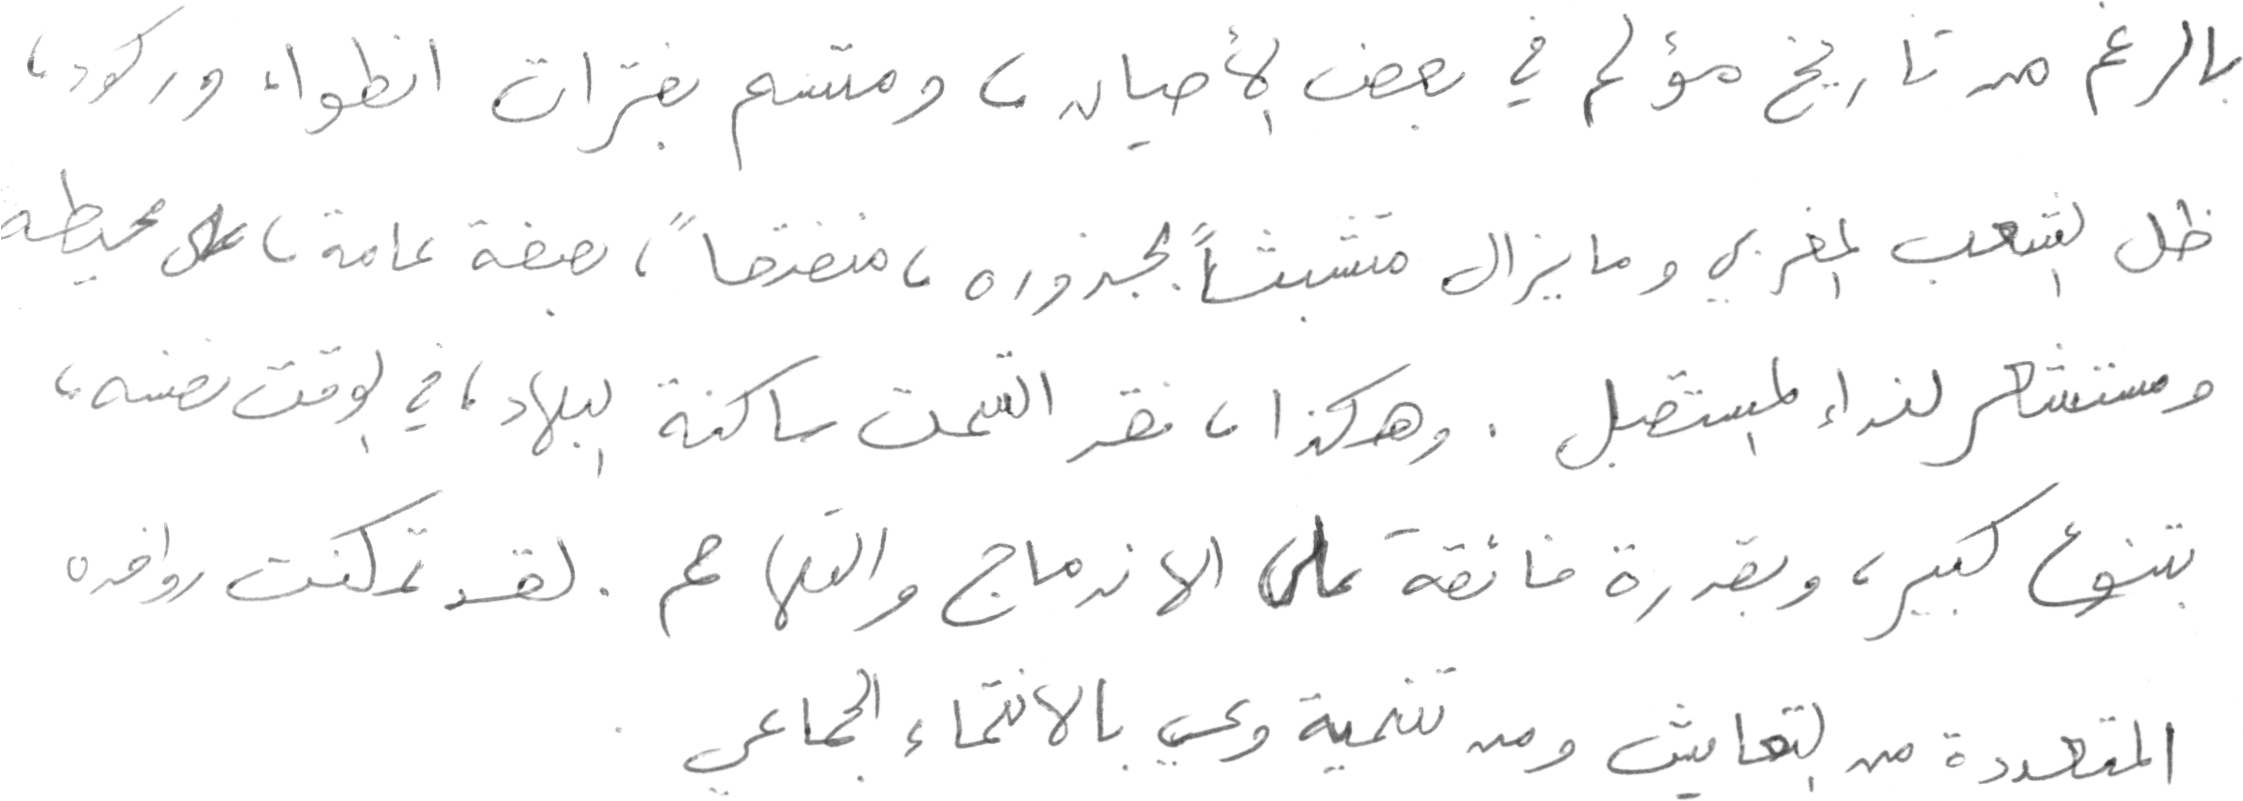 بالرغم من تاريخ مؤلم في بعض الأحيان، ومتسم بفترات انطواء وركود،
ظل الشعب المغربي وما يزال متشبثاً بجذوره، منفتحاً، بصفة عامة، على محيطه
ومستشعر لنداء المستقبل. وهكذا، فقد اتسمت ساكنة البلاد، في الوقت نفسه،
بتنوع كبير، وبقدرة فائقة على الاندماج والتلاحم. لقد تمكنت روافده
المتعددة من التعايش ومن تنمية وعي بالانتماء الجماعي.